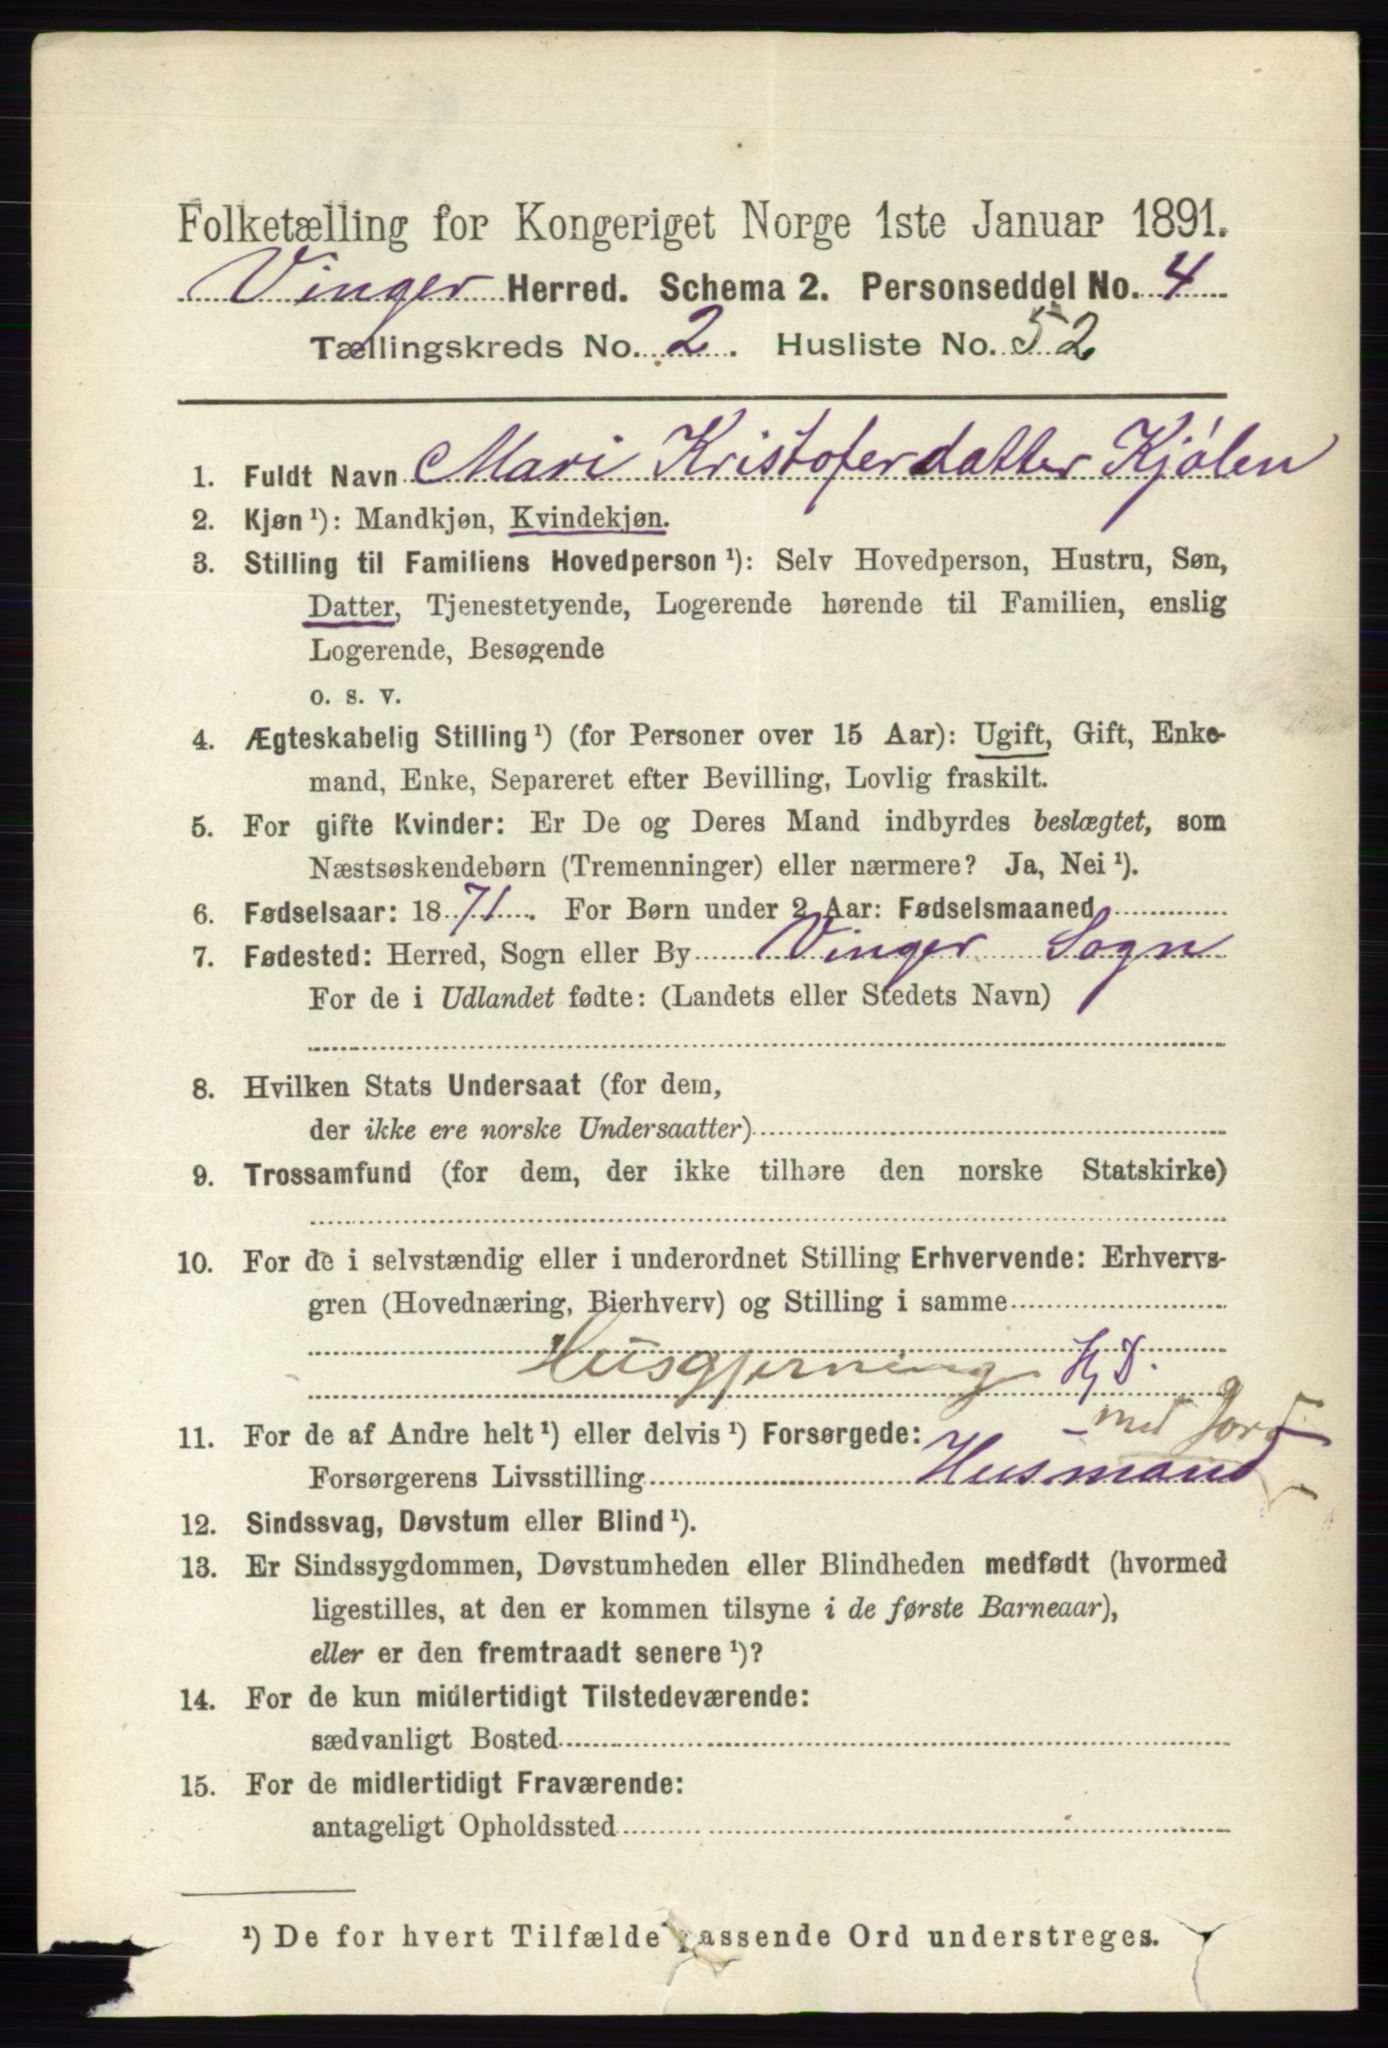 Folketælling for Kongeriget Norge 1ste Januar 1891.
Vinger Herred. Schema 2. Personseddel No. 4
Tællingskreds No. 2. Husliste No. 52
1. Fuldt Navn Mari Kristoferdatter Kjølen
2. Kjøn¹): Mandkjøn, Kvindekjøn.
3. Stilling til Familiens Hovedperson¹): Selv Hovedperson, Hustru, Søn,
Datter, Tjenestetyende, Logerende hørende til Familien, enslig
Logerende, Besøgende
o. s. v.
4. Ægteskabelig Stilling¹) (for Personer over 15 Aar): Ugift, Gift, Enke-
mand, Enke, Separeret efter Bevilling, Lovlig fraskilt.
5. For gifte Kvinder: Er De og Deres Mand indbyrdes beslægtet, som
Næstsøskendebørn (Tremenninger) eller nærmere? Ja, Nei¹).
6. Fødselsaar: 1871. For Børn under 2 Aar: Fødselsmaaned
7. Fødested: Herred, Sogn eller By Vinger Sogn
For de i Udlandet fødte: (Landets eller Stedets Navn)
8. Hvilken Stats Undersaat (for dem,
der ikke ere norske Undersaatter)
9. Trossamfund (for dem, der ikke tilhøre den norske Statskirke)
10. For de i selvstændig eller i underordnet Stilling Erhvervende: Erhvervs-
gren (Hovednæring, Bierhverv) og Stilling i samme
Husgjerning H, D.
11. For de af Andre helt¹) eller delvis¹) Forsørgede:
med Jord
Forsørgerens Livsstilling Husmand
12. Sindssvag, Døvstum eller Blind¹).
13. Er Sindssygdommen, Døvstumheden eller Blindheden medfødt (hvormed
ligestilles, at den er kommen tilsyne i de første Barneaar),
eller er den fremtraadt senere¹)?
14. For de kun midlertidigt Tilstedeværende:
sædvanligt Bosted
15. For de midlertidigt Fraværende:
antageligt Opholdssted
¹) De for hvert Tilfælde passende Ord understreges.